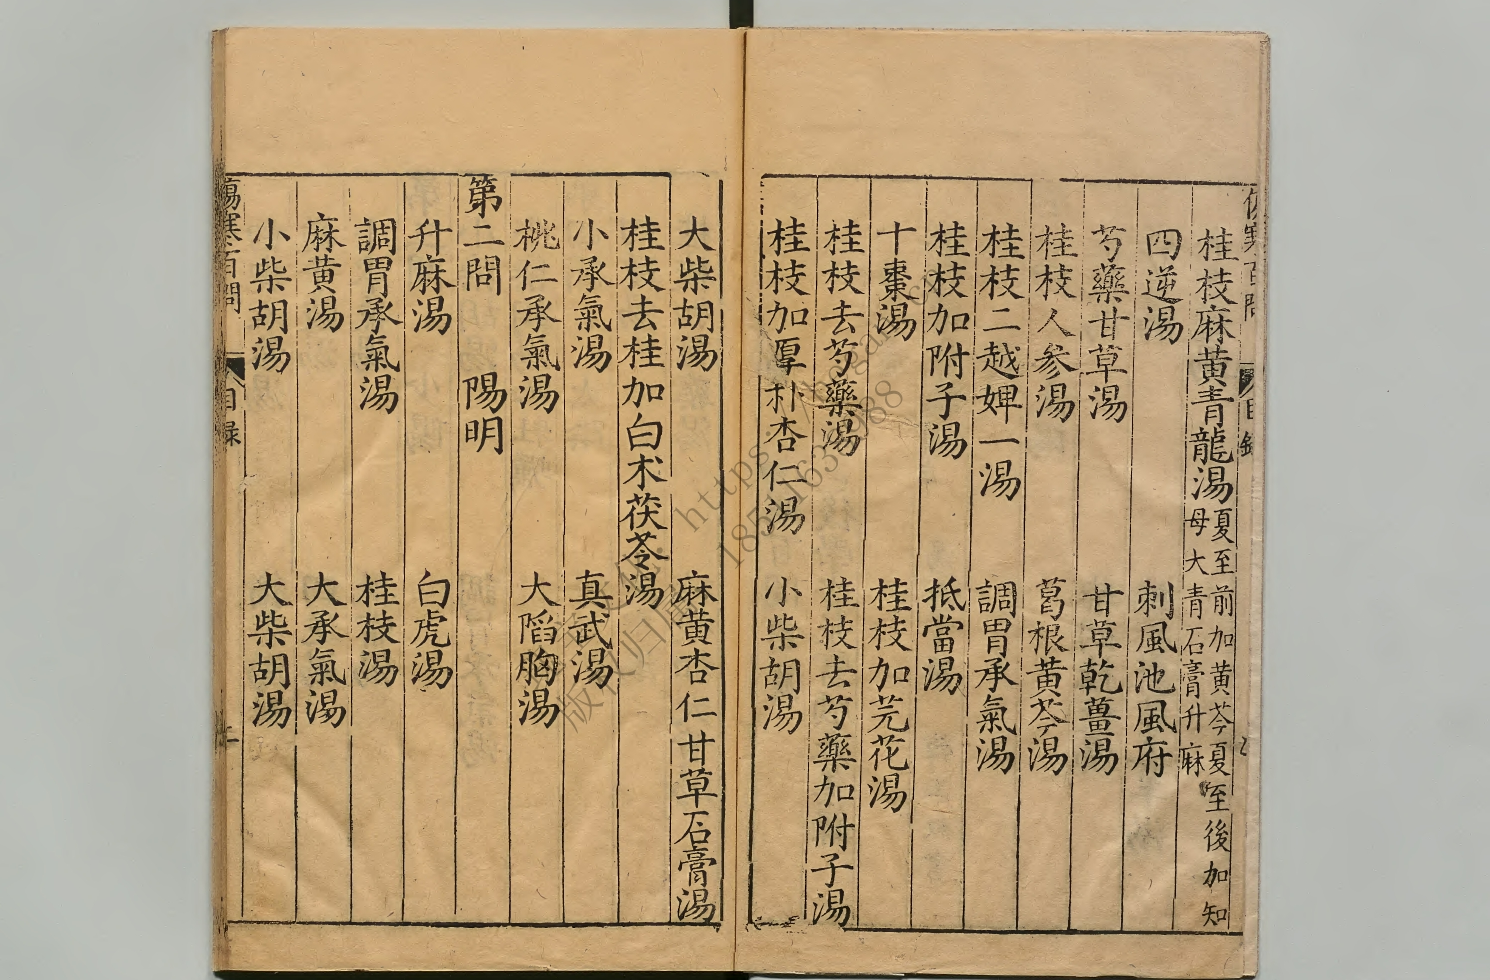 桂枝麻黄青龍湯 夏至前加黄芩夏至後加知
母大青石膏升麻
四逆湯 刺風池風府
芍藥甘草湯 甘草乾薑湯
桂枝人參湯 葛根黄芩湯
桂枝二越婢一湯 調胃承氣湯
桂枝加附子湯 抵當湯
十棗湯 桂枝加芫花湯
桂枝去芍藥湯 桂枝去芍藥加附子湯
桂枝加厚朴杏仁湯 小柴胡湯
大柴胡湯 麻黄杏仁甘草石膏湯
桂枝去桂加白朮茯苓湯
小承氣湯 真武湯
桃仁承氣湯 大陷胸湯
第二問 陽明
升麻湯 白虎湯
調胃承氣湯 桂枝湯
麻黄湯 大承氣湯
小柴胡湯 大柴胡湯
傷寒百問 目録